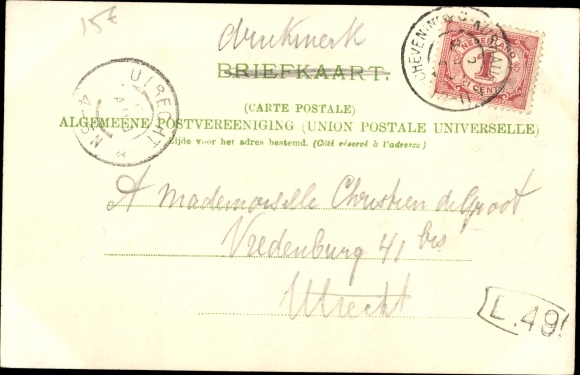 15€
drukwerk
BRIEFKAART.
(CARTE POSTALE)
ALGEMEENE POSTVEREENIGING (UNION POSTALE UNIVERSELLE)
Zijde voor het adres bestemd. (Côté réservé à l'adresse)
NEDERLAND
1
CENT
UTRECHT
A Mademoiselle Christien de Groot
Vredenburg 41 bis
Utrecht
L.49